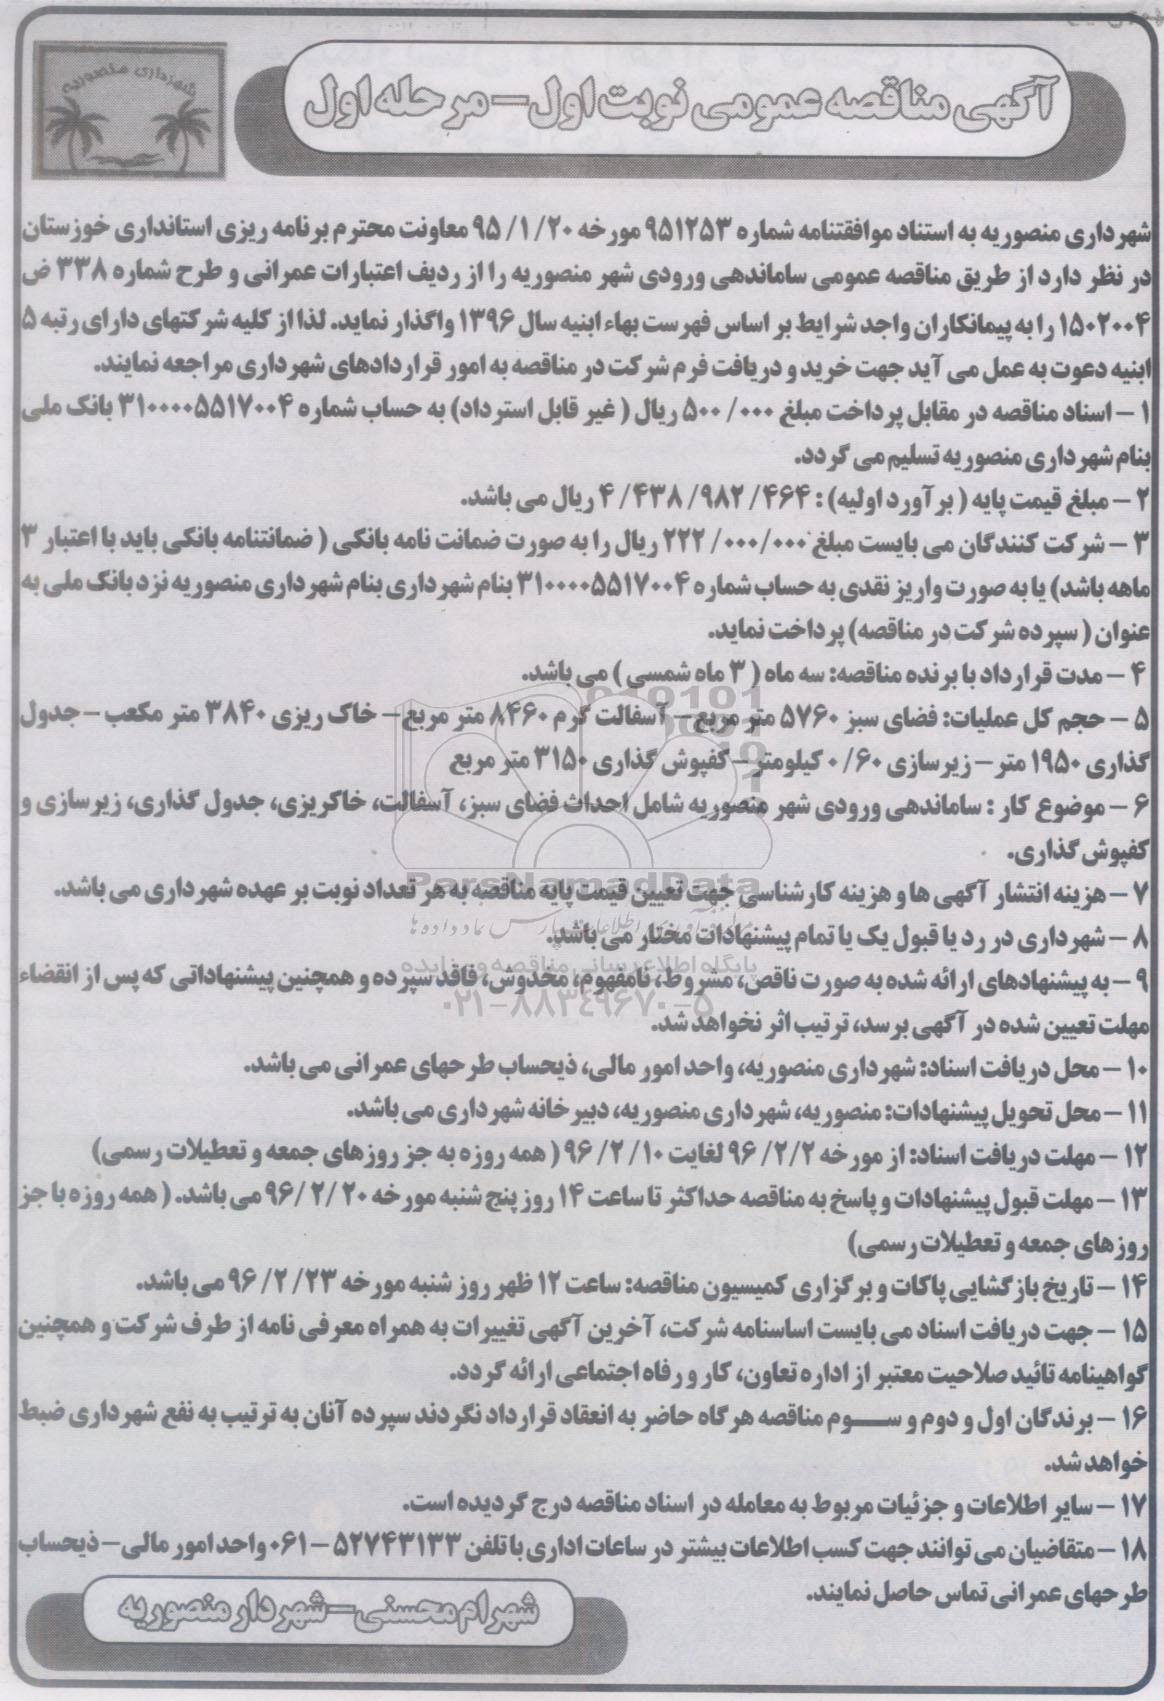 شهرداری منصوریه
آگهی مناقصه عمومی نوبت اول - مرحله اول
شهرداری منصوریه به استناد موافقتنامه شماره ۹۵۱۲۵۳ مورخه ۲۰ /۱ /۹۵ معاونت محترم برنامه ریزی استانداری خوزستان
در نظر دارد از طریق مناقصه عمومی ساماندهی ورودی شهر منصوریه را از ردیف اعتبارات عمرانی و طرح شماره ۳۳۸ ض
۱۵۰۲۰۰۴ را به پیمانکاران واجد شرایط بر اساس فهرست بهاء ابنیه سال ۱۳۹۶ واگذار نماید. لذا از کلیه شرکتهای دارای رتبه ۵
ابنیه دعوت به عمل می آید جهت خرید و دریافت فرم شرکت در مناقصه به امور قراردادهای شهرداری مراجعه نمایند.
۱ - اسناد مناقصه در مقابل پرداخت مبلغ ۰۰۰/ ۵۰۰ ریال ( غیر قابل استرداد) به حساب شماره ۳۱۰۰۰۰۵۵۱۷۰۰۴ بانک ملی
بنام شهرداری منصوریه تسلیم می گردد.
۲ - مبلغ قیمت پایه ( برآورد اولیه) : ۴۶۴/ ۹۸۲/ ۴۳۸/ ۴ ریال می باشد.
۳ - شرکت کنندگان می بایست مبلغ ۰۰۰/۰۰۰/ ۲۲۲ ریال را به صورت ضمانت نامه بانکی ( ضمانتنامه بانکی باید با اعتبار ۳
ماهه باشد) یا به صورت واریز نقدی به حساب شماره ۳۱۰۰۰۰۵۵۱۷۰۰۴ بنام شهرداری بنام شهرداری منصوریه نزد بانک ملی به
عنوان ( سپرده شرکت در مناقصه) پرداخت نماید.
۴ - مدت قرارداد با برنده مناقصه: سه ماه ( ۳ ماه شمسی ) می باشد.
۵ - حجم کل عملیات: فضای سبز ۵۷۶۰ متر مربع - آسفالت گرم ۸۴۶۰ متر مربع - خاک ریزی ۳۸۴۰ متر مکعب - جدول
گذاری ۱۹۵۰ متر - زیرسازی ۶۰/ ۰ کیلومتر - کفپوش گذاری ۳۱۵۰ متر مربع
۶ - موضوع کار : ساماندهی ورودی شهر منصوریه شامل احداث فضای سبز، آسفالت، خاکریزی، جدول گذاری، زیرسازی و
کفپوش گذاری.
ParsNamadData
۷ - هزینه انتشار آگهی ها و هزینه کارشناسی جهت تعیین قیمت پایه مناقصه به هر تعداد نوبت بر عهده شهرداری می باشد.
۸ - شهرداری در رد یا قبول یک یا تمام پیشنهادات مختار می باشد.
پایگاه اطلاع رسانی مناقصه و مزایده
۹ - به پیشنهادهای ارائه شده به صورت ناقص، مشروط، نامفهوم، مخدوش، فاقد سپرده و همچنین پیشنهاداتی که پس از انقضاء
۰۲۱-۸۸۳۴۹۶۷۰-۵
مهلت تعیین شده در آگهی برسد، ترتیب اثر نخواهد شد.
۱۰ - محل دریافت اسناد: شهرداری منصوریه، واحد امور مالی، ذیحساب طرحهای عمرانی می باشد.
۱۱ - محل تحویل پیشنهادات: منصوریه، شهرداری منصوریه، دبیرخانه شهرداری می باشد.
۱۲ - مهلت دریافت اسناد: از مورخه ۲ /۲ /۹۶ لغایت ۱۰ /۲ /۹۶ ( همه روزه به جز روزهای جمعه و تعطیلات رسمی)
۱۳ - مهلت قبول پیشنهادات و پاسخ به مناقصه حداکثر تا ساعت ۱۴ روز پنج شنبه مورخه ۲۰ /۲ /۹۶ می باشد. ( همه روزه با جز
روزهای جمعه و تعطیلات رسمی)
۱۴ - تاریخ بازگشایی پاکات و برگزاری کمیسیون مناقصه: ساعت ۱۲ ظهر روز شنبه مورخه ۲۳ /۲ /۹۶ می باشد.
۱۵ - جهت دریافت اسناد می بایست اساسنامه شرکت، آخرین آگهی تغییرات به همراه معرفی نامه از طرف شرکت و همچنین
گواهینامه تائید صلاحیت معتبر از اداره تعاون، کار و رفاه اجتماعی ارائه گردد.
۱۶ - برندگان اول و دوم و ســـوم مناقصه هرگاه حاضر به انعقاد قرارداد نگردند سپرده آنان به ترتیب به نفع شهرداری ضبط
خواهد شد.
۱۷ - سایر اطلاعات و جزئیات مربوط به معامله در اسناد مناقصه درج گردیده است.
۱۸ - متقاضیان می توانند جهت کسب اطلاعات بیشتر در ساعات اداری با تلفن ۵۲۷۴۳۱۳۳ - ۰۶۱ واحد امور مالی - ذیحساب
طرحهای عمرانی تماس حاصل نمایند.
شهرام محسنی - شهردار منصوریه